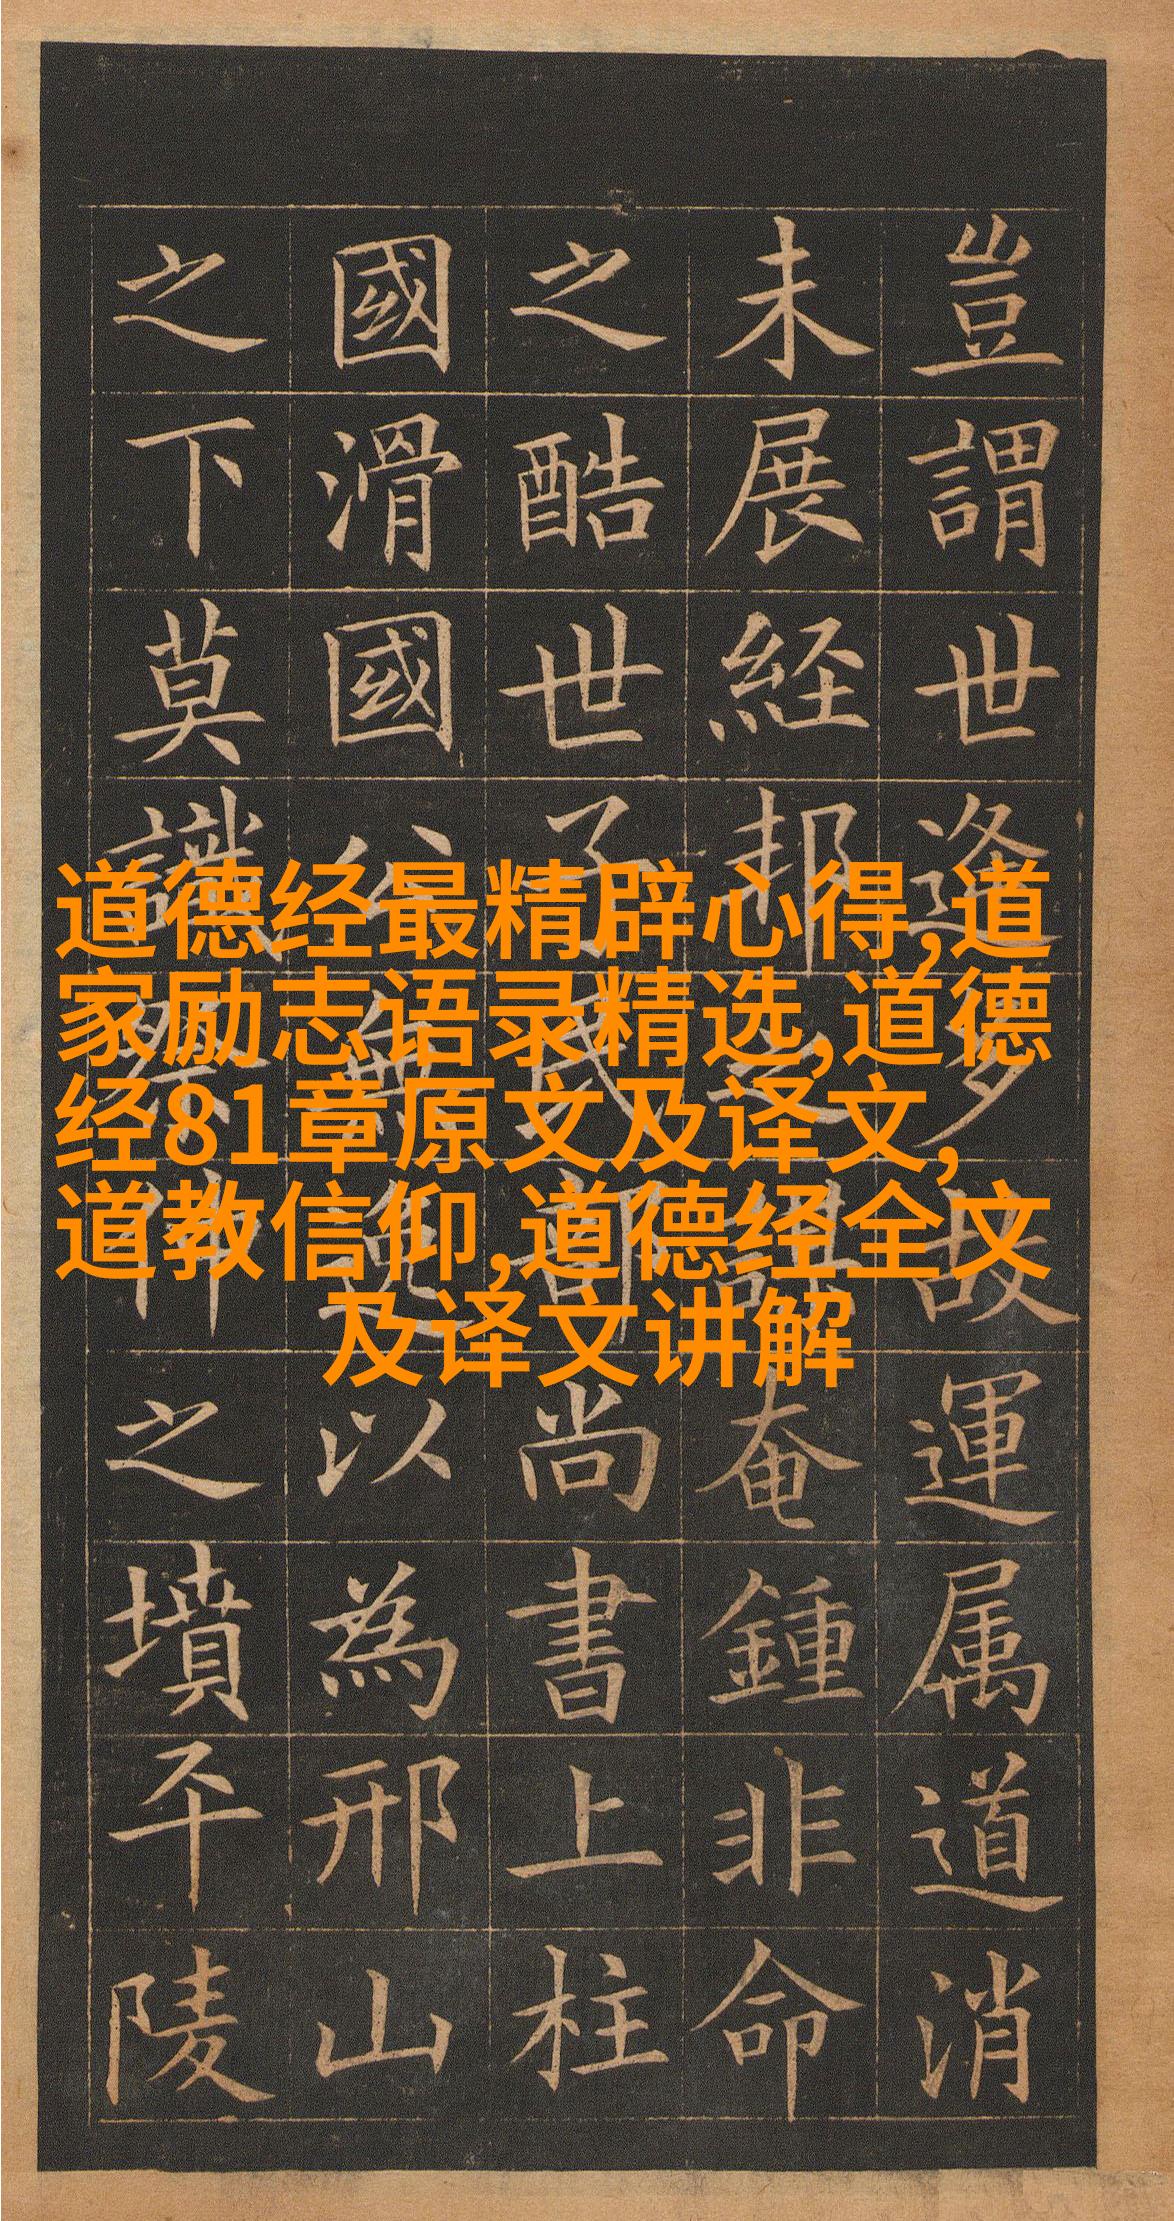 豈謂世逢多故運属道消
未展経邦之謀奄鍾非命
之酷世子民部尚書上柱
國滑國公無逸以為邢山
之下莫識祭仲之墳平陵
道德经最精辟心得,道
家励志语录精选,道德
经81章原文及译文,
道教信仰,道德经全文
及译文讲解